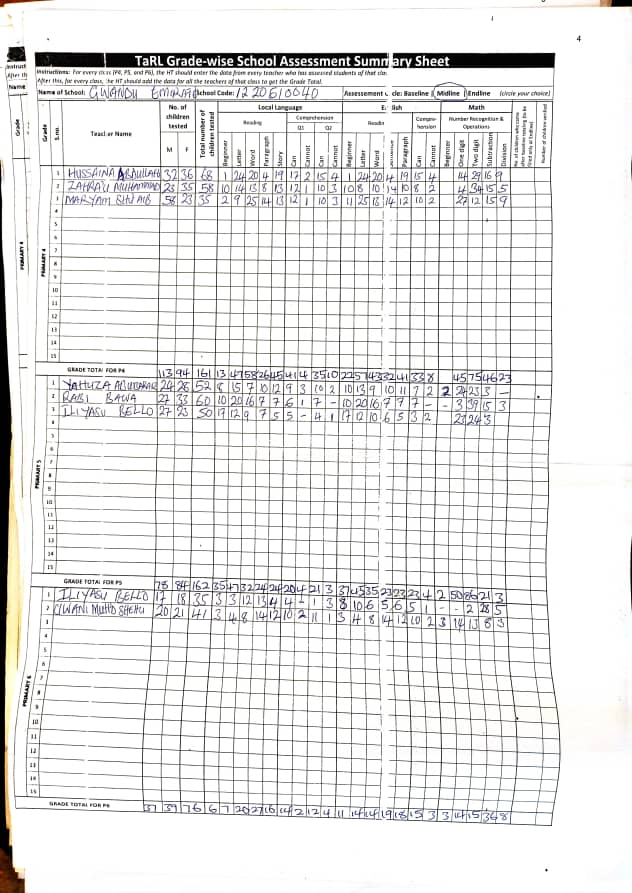 4
TaRL Grade-wise School Assessment Summary Sheet
Instructions: For every class (P4, P5, and P6), the HT should enter the data from every teacher who has assessed students of that clas
After this, for every class, the HT should add the data for all the teachers of that class to get the Grade Total.
Name of School: GWANDU School Code: Assessment cle: Baseline Midline Endline (circle your choice)
Grade S.no. Teacher Name No. of children tested M F Total number of children tested Local Language Math
Reading Comprehension Q1 Q2 Readin Number Recognition & Operations
Beginner Letter Word Paragraph Story Can Cannot Can Cannot Beginner Letter Word Paragraph Can Cannot Beginner One digit Two digit Subtraction Division
PRIMARY 4
1 HUSSAINA 32 36 68 1 24 20 4 19 17 2 15 4 1 24 20 4 19 15 4 14 29 16 9
2 ZAHRA'U MUHAMMAD 23 35 58 10 14 13 8 13 12 1 10 3 10 8 10 14 10 8 2 4 34 15 5
MARYAM 58 23 35 2 9 25 14 13 12 1 10 3 11 25 13 14 12 10 2 27 12 15 9
4
5
6
7
8
9
10
11
12
13
14
15
GRADE TOTAL FOR P4 113 94 161 13 47 58 26 45 41 4 35 10 22 57 43 32 41 33 8 45 75 46 23
PRIMARY 5
1 YAHUZA ABUBAKAR 24 28 52 8 15 7 10 12 9 3 10 2 10 13 9 10 11 7 2 2 24 23 3 -
2 RABI BAWA 27 33 60 10 20 16 7 7 6 1 7 - 10 20 16 7 7 7 - - 3 39 15 3
3 ILIYASU BELLO 27 23 50 17 12 9 7 5 5 - 4 1 17 12 10 6 5 3 2 23 24 3
4
5
6
7
8
9
10
11
12
13
14
15
GRADE TOTAL FOR P5 78 84 162 35 47 32 24 24 20 4 21 3 37 45 35 23 23 23 4 2 50 86 21 3
PRIMARY 6
1 ILIYASU BELLO 17 18 35 3 3 12 13 4 4 - 1 3 8 10 6 5 6 5 1 - - 2 28 5
2 20 21 41 3 4 8 14 12 10 2 11 1 3 4 8 14 12 10 2 3 14 13 8 3
3
4
5
6
7
8
9
10
11
12
13
14
15
GRADE TOTAL FOR P6 37 39 76 6 7 20 27 16 14 2 12 4 11 14 14 19 18 15 3 3 14 15 36 8